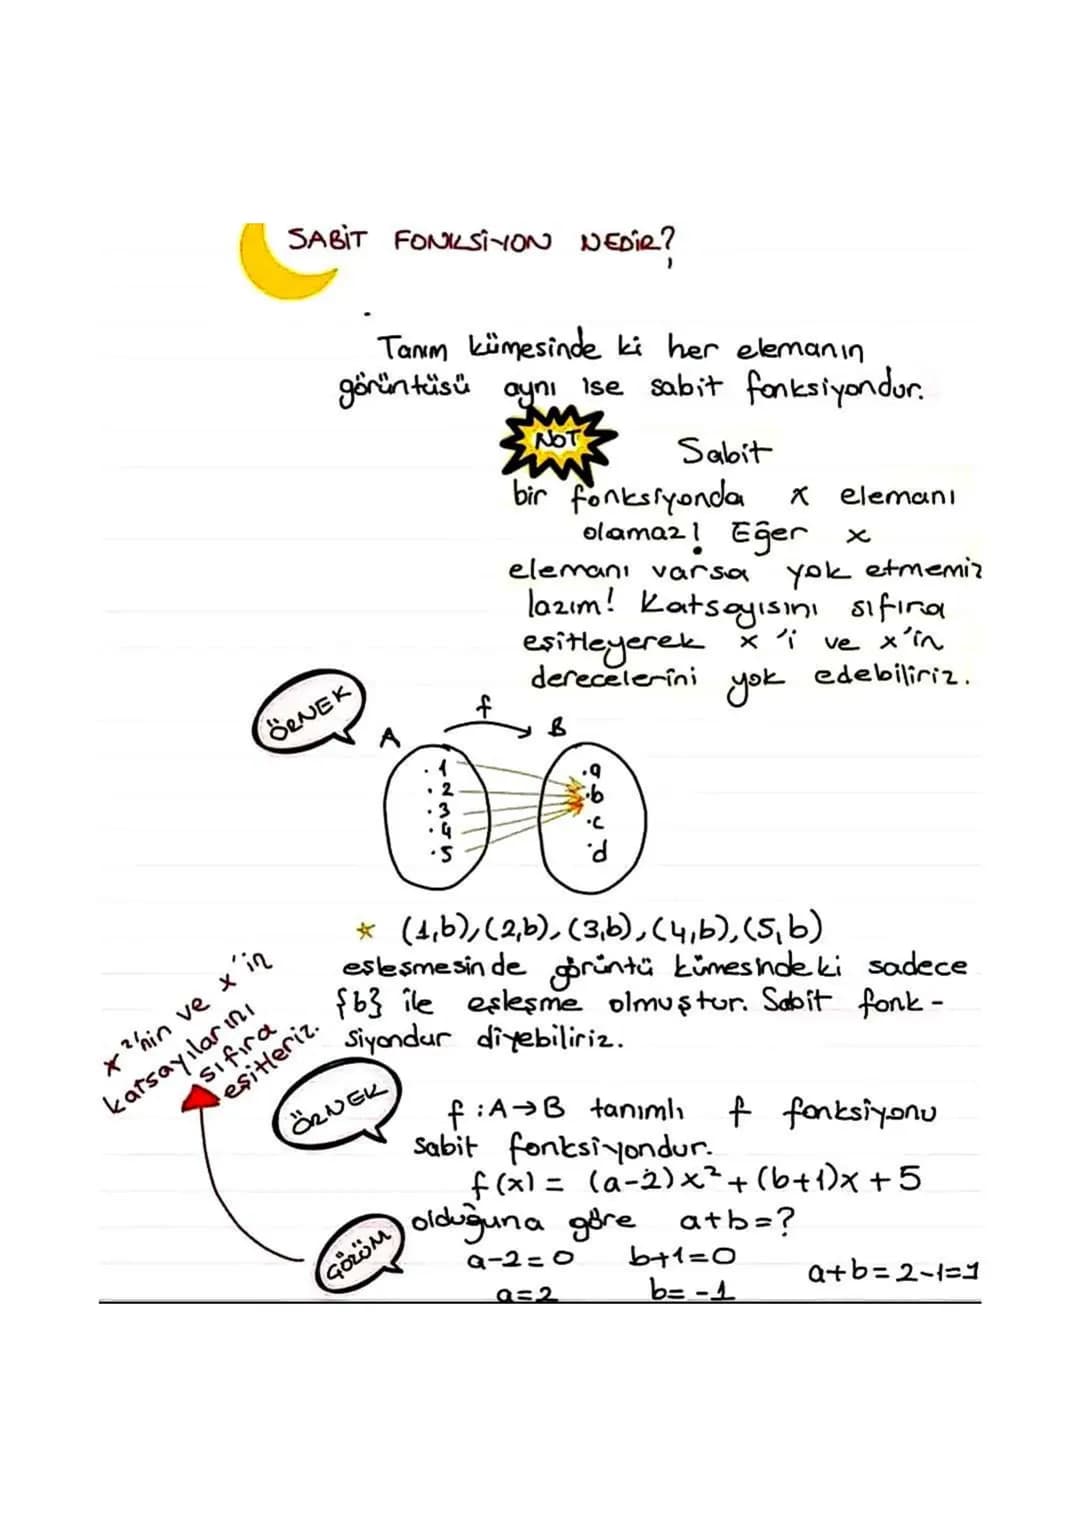 SABİT FONKSİYON NEDİR?
Tanım kümesinde ki her elemanın
görüntüsü aynı ise sabit fonksiyondur.
NOT
Sabit
bir fonksiyonda x elemanı
olamaz! Eğer x
elemanı varsa yok etmemiz
lazım! Katsayısını sıfıra
eşitleyerek x'i ve x'in
derecelerini yok edebiliriz.
ÖRNEK
f
A B
.1 .a
.2 .b
.3 .c
.4 .d
.5
(1,b),(2,b),(3,b),(4,b),(5,b)
eşleşmesinde görüntü kümesindeki sadece
{b} ile eşleşme olmuştur. Sabit fonk-
siyondur diyebiliriz.
x²'nin ve x'in
katsayılarını
sıfıra
eşitleriz.
ÖRNEK
f:A→B tanımlı f fonksiyonu
sabit fonksiyondur.
f(x) = (a-2)x²+(b+1)x+5
olduğuna göre a+b=?
ÇÖZÜM
a-2=0 b+1=0
a+b=2-1=1
a=2 b=-1